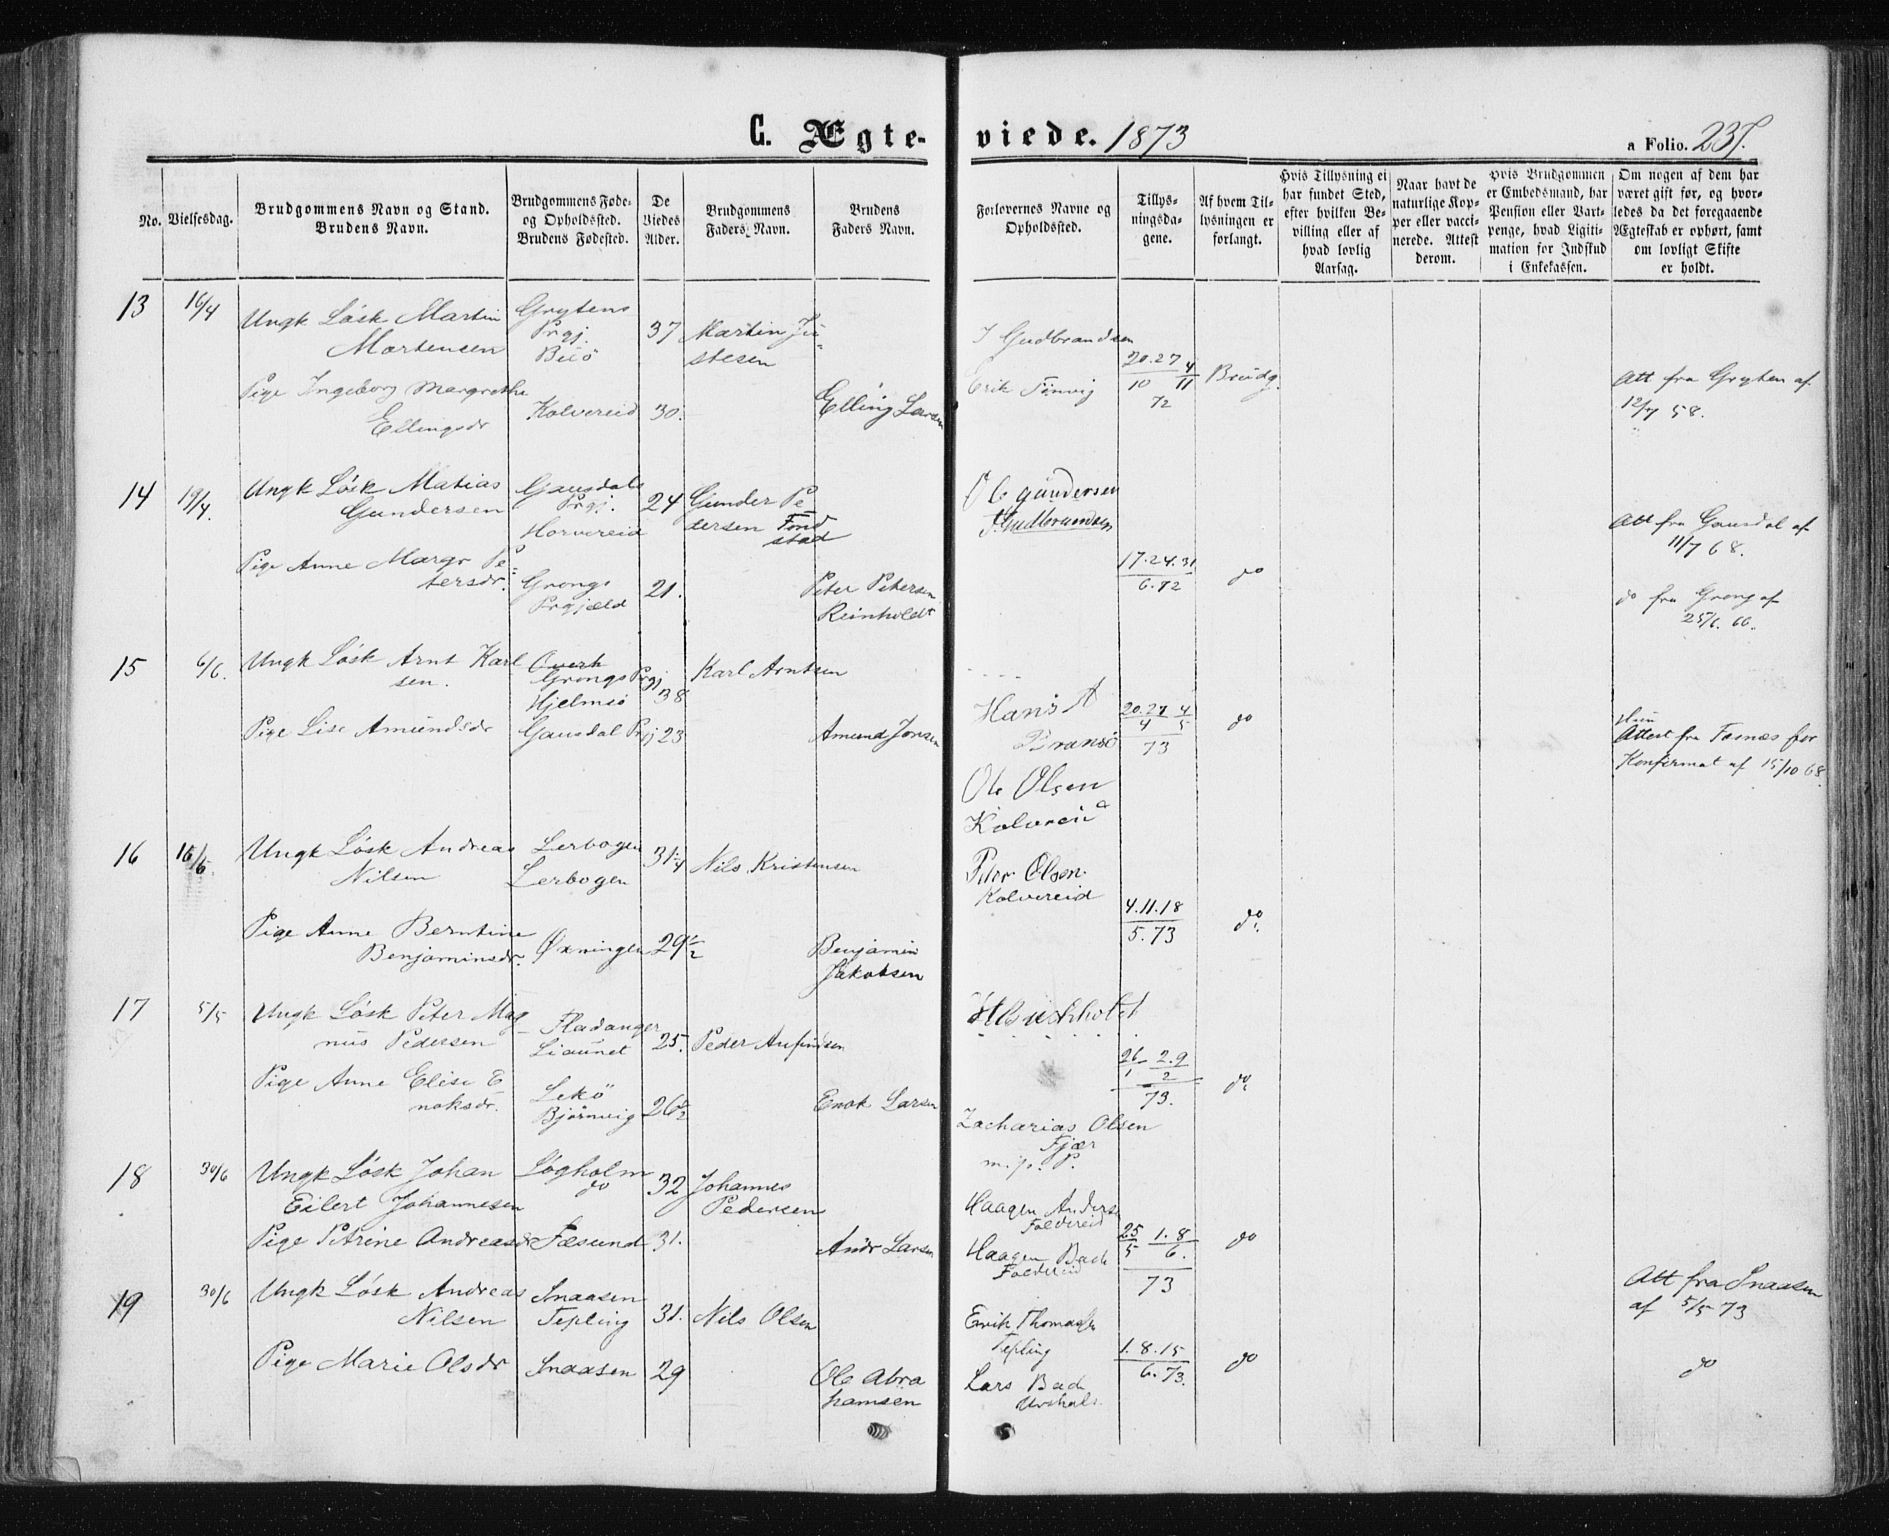 C. Ægte-
viede. 1873
a Folio. 237.
No.
Vielsesdag.
Brudgommens Navn og Stand.
Brudens Navn.
Brudgommens Føde-
og Opholdssted.
Brudens Fødested.
De
Viedes
Alder.
Brudgommens
Faders Navn.
Brudens
Faders Navn.
Forlovernes Navne og
Opholdssted.
Tillys-
ningsda-
gene.
Af hvem Til-
lysningen er
forlangt.
Hvis Tillysning ei
har fundet Sted,
efter hvilken Be-
villing eller af
hvad lovlig
Aarsag.
Naar havt de
naturlige Kop-
per eller vacci-
nerede. Attest
derom.
Hvis Brudgommen
er Embedsmand, har
Pension eller Vart-
penge, hvad Ligiti-
mation for Indskud
i Enkekassen.
Om nogen af dem har
været gift før, og hvor-
ledes da det foregaaende
Ægteskab er ophørt, samt
om lovligt Skifte
er holdt.
13
16/4
Ungk Løsk Martin
Martensen
Grytens
Prgj.
37
Martin Ju-
stesen
Pige Ingeborg Margrethe
Ellingsdr
Kolvereid
30.
Elling Larsen
J Gudbrandsen
Erik Finvig
20.27 4
10 11
72
Brudg.
Att fra Gryten af
12/7 58.
14
19/4.
Ungk Løsk Matias
Gundersen
Gausdals
Prgj.
Horvereid
24
Gunder Pe-
dersen Fond
stad
Pige Anne Margr Pe-
tersdr.
Grongs
Prgjæld
21.
Peter Petersen
Reinholdt
Ole Gundersen
J. Gudbrandsen
17.24.31
6.72
do
Att fra Gausdal af
11/7 68.
do fra Grong af
25/6. 66.
15
6/6.
Ungk Løsk Arnt Karl
sen.
Overh
Grongs Prgj
Hjelmsö
38
Karl Arntsen
Pige Lise Amundsdr
Gausdal Prgj
23
Amund Jonsen
Hans A
Bransö
20.27 4
4 5
73
do
Hun
Attest fra Fosnæs for
Konfermat af 15/10 68
Ole Olsen
Kolvereid
16
16/6.
Ungk Løsk Andreas
Nilsen
Lerbogen
Lerbogen
31 1/4
Nils Kristensen
Pige Anne Berntine
Benjaminsdr.
Øxningen
29 1/2
Benjamin
Jakobsen
Peter Olsen.
Kolvereid
4.11.18
5.73
do.
17
5/5
Ungk Løsk Peter Mag-
nus Pedersen
Fladanger
Liaunet
25.
Peder
Pige Anne Elise E-
noksdr.
Lekö
Bjørnvig
26 1/2
Enok Larsen
26 2.9
1 2
73.
do.
Zacharias Olsen
Fjær
m. p. P.
18
30/6
Ungk Løsk Johan
Eilert Johannesen
Søgholm
do
32
Johannes
Pedersen
Pige Petrine Andreasdr
Fæsund
31.
Andr Larsen
Haagen Anders
Foldereid
Haagen Bach
Foldereid
25 1.8
5 6.
73
do
19
30/6
Ungk Løsk Andreas
Nilsen
Snaasen
Tepling
31.
Nils Olsen
Pige Marie Olsdr
Snaasen
29
Ole Abra
hamsen
Erik Thomassen
Tepling
Lars Bach
1.8.15
6.73.
do
Att fra Snaasen
af 5/5 73
do